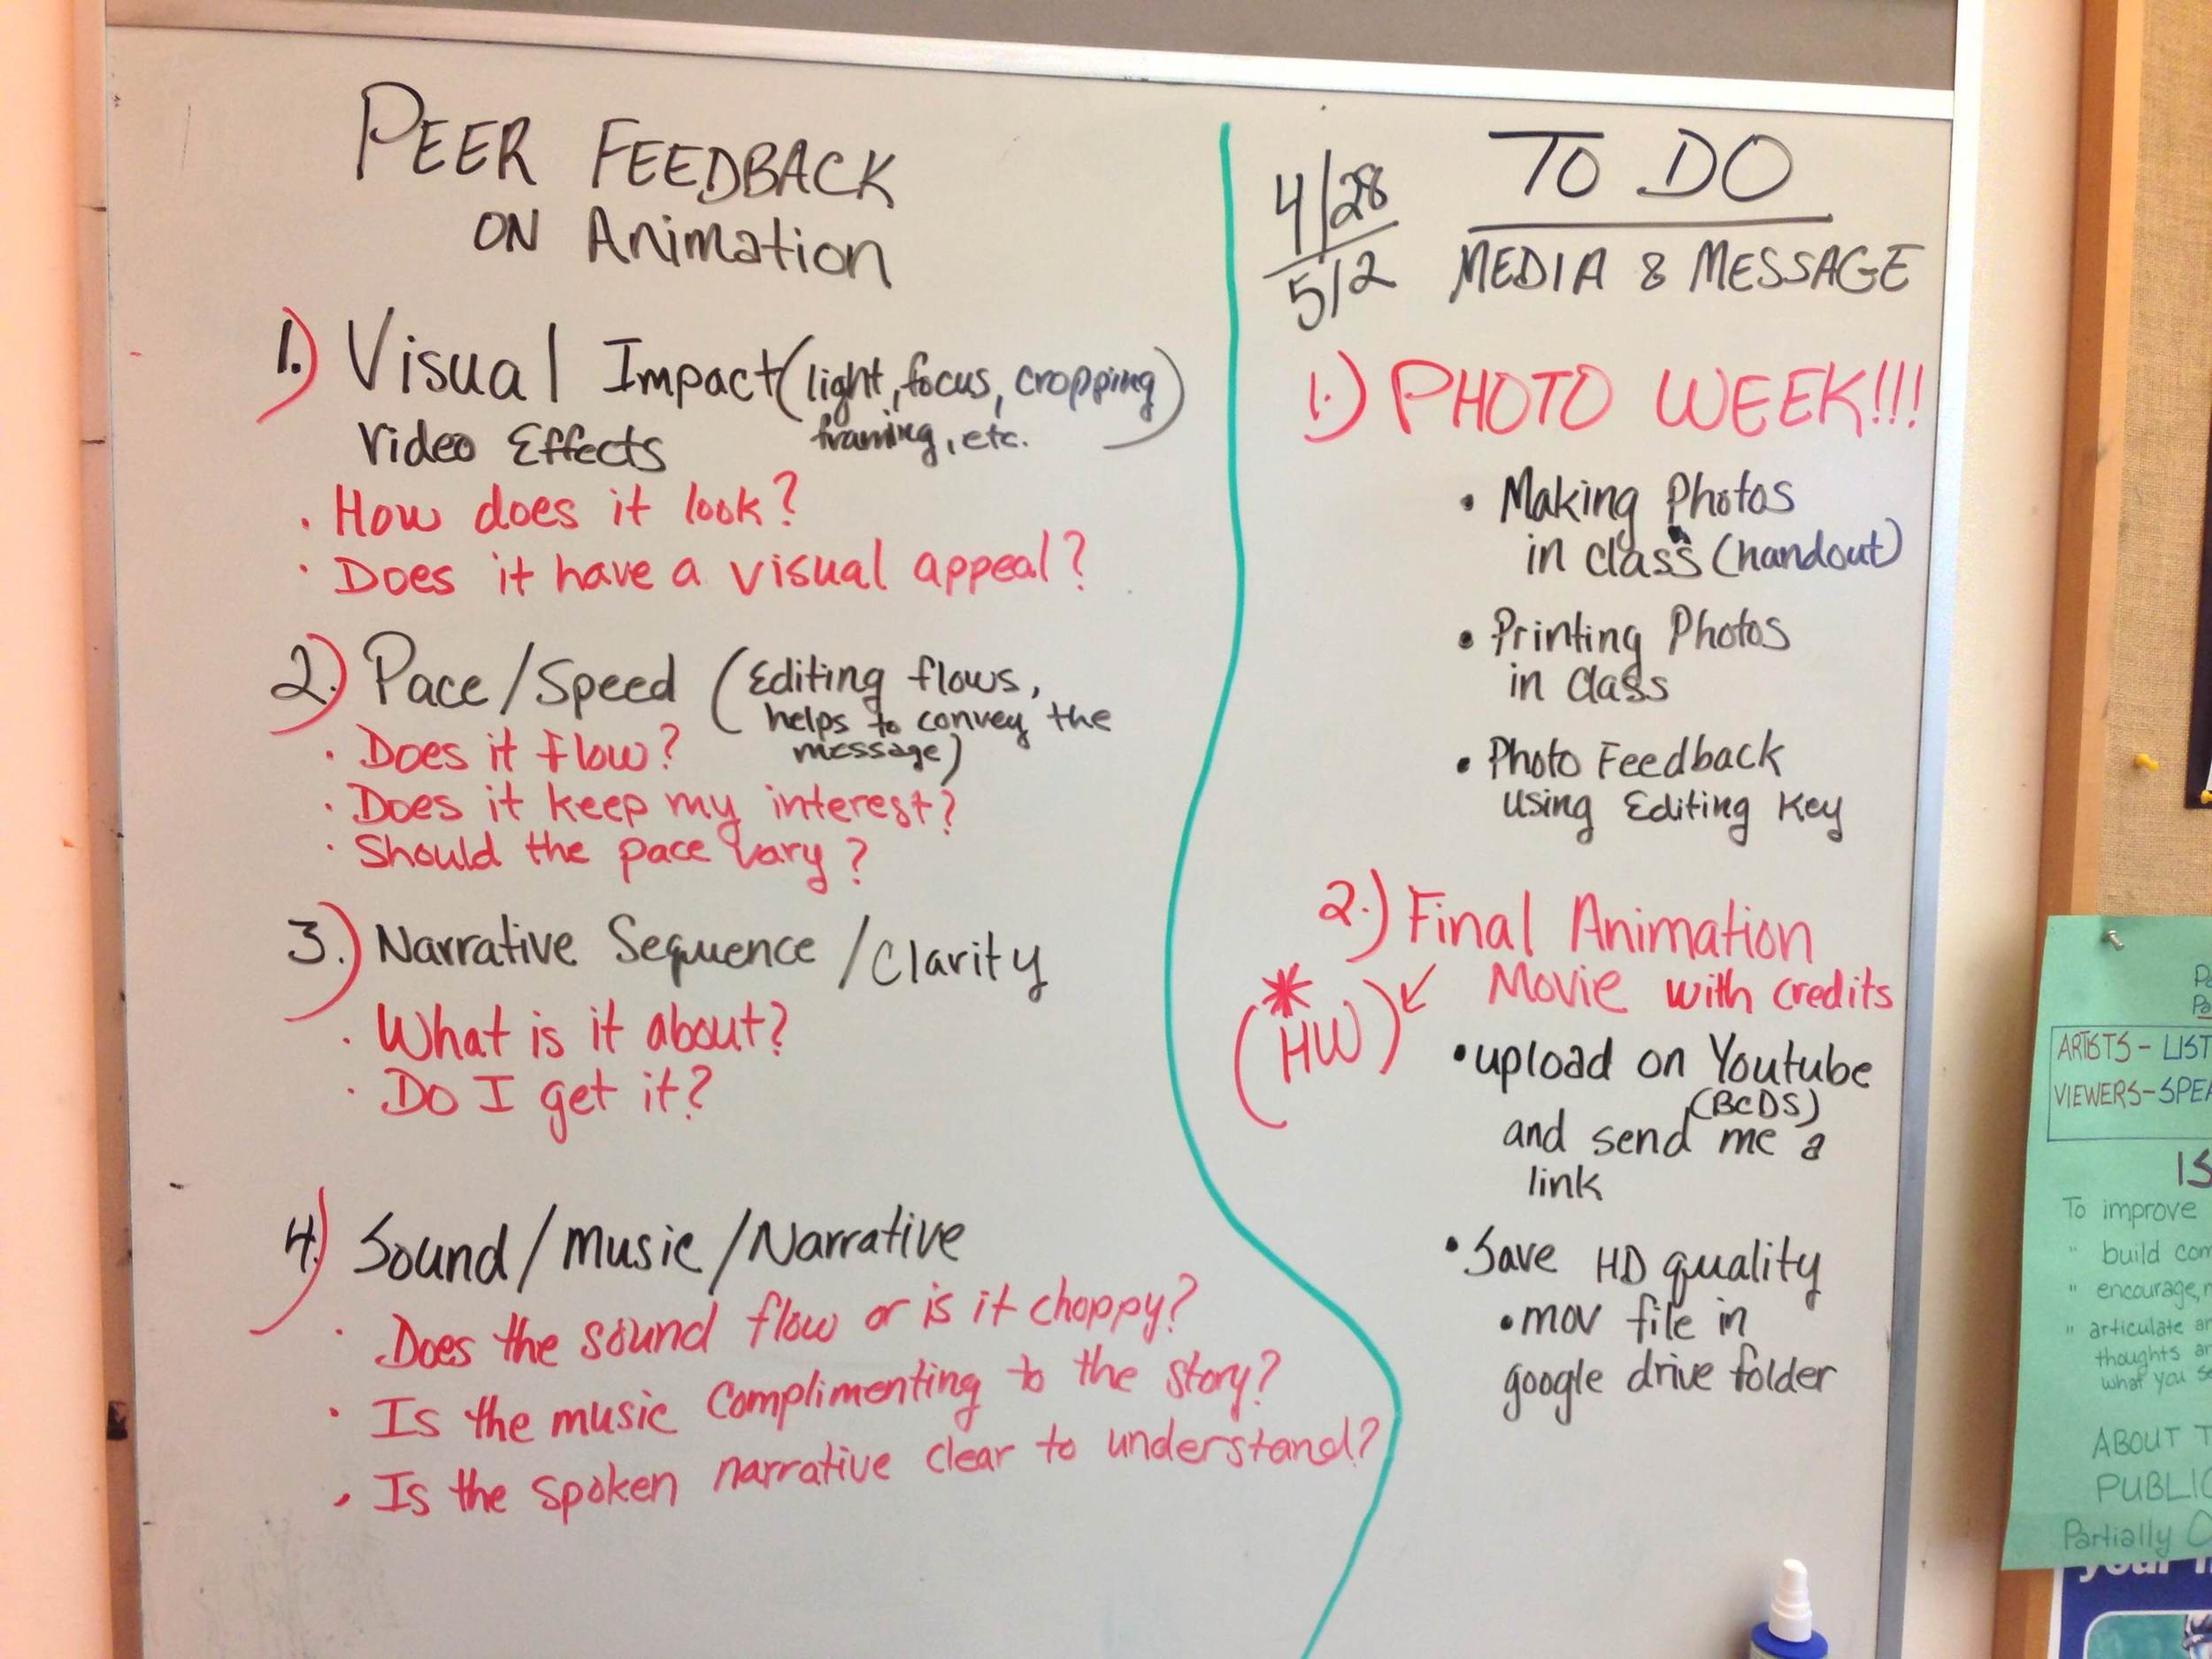 PEER FEEDBACK
ON Animation
1.) Visual Impact (light, focus, cropping)
framing, etc.
Video Effects
• How does it look?
• Does it have a visual appeal?
2.) Pace/Speed (Editing flows,
helps to convey the
message)
• Does it flow?
• Does it keep my interest?
• Should the pace vary?
3.) Narrative Sequence/Clarity
• What is it about?
• Do I get it?
4.) Sound/Music/Narrative
• Does the sound flow or is it choppy?
• Is the music complimenting to the story?
• Is the spoken narrative clear to understand?
4/28
5/2
TO DO
MEDIA & MESSAGE
1.) PHOTO WEEK!!!
• Making Photos
in class (handout)
• Printing Photos
in class
• Photo Feedback
using Editing Key
2.) Final Animation
Movie with credits
(* HW)
• upload on Youtube
(BCDS)
and send me a
link
• Save HD quality
• mov file in
google drive folder
ARTISTS - LIST
VIEWERS - SPEA
IS
To improve
" build com
" encourage,
" articulate
thoughts
what you
ABOUT T
PUBLIC
Partially
your